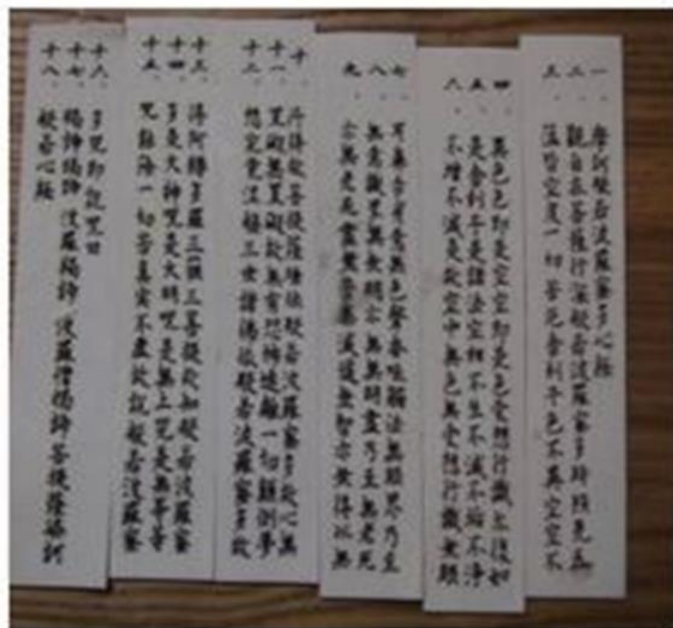 一、摩訶般若波羅蜜多心経
二、觀自在菩薩行深般若波羅蜜多時照見五
三、蘊皆空度一切苦厄舍利子色不異空空不
四、異色色即是空空即是色受想行識亦復如
五、是舍利子是諸法空相不生不滅不垢不浄
六、不增不減是故空中無色無受想行識無眼
七、耳鼻舌身意無色聲香味觸法無眼界乃至
八、無意識界無無明亦無無明盡乃至無老死
九、亦無老死盡無苦集滅道無智亦無得以無
十、所得故菩提薩埵依般若波羅蜜多故心無
十一、罣礙無罣礙故無有恐怖遠離一切顛倒夢
十二、想究竟涅槃三世諸佛依般若波羅蜜多故
十三、得阿耨多羅三藐三菩提故知般若波羅蜜
十四、多是大神咒是大明咒是無上咒是無等等
十五、咒能除一切苦真實不虛故說般若波羅蜜
十六、多咒即說咒曰
十七、揭諦揭諦 波羅揭諦 波羅僧揭諦 菩提薩婆訶
十八、般若心経